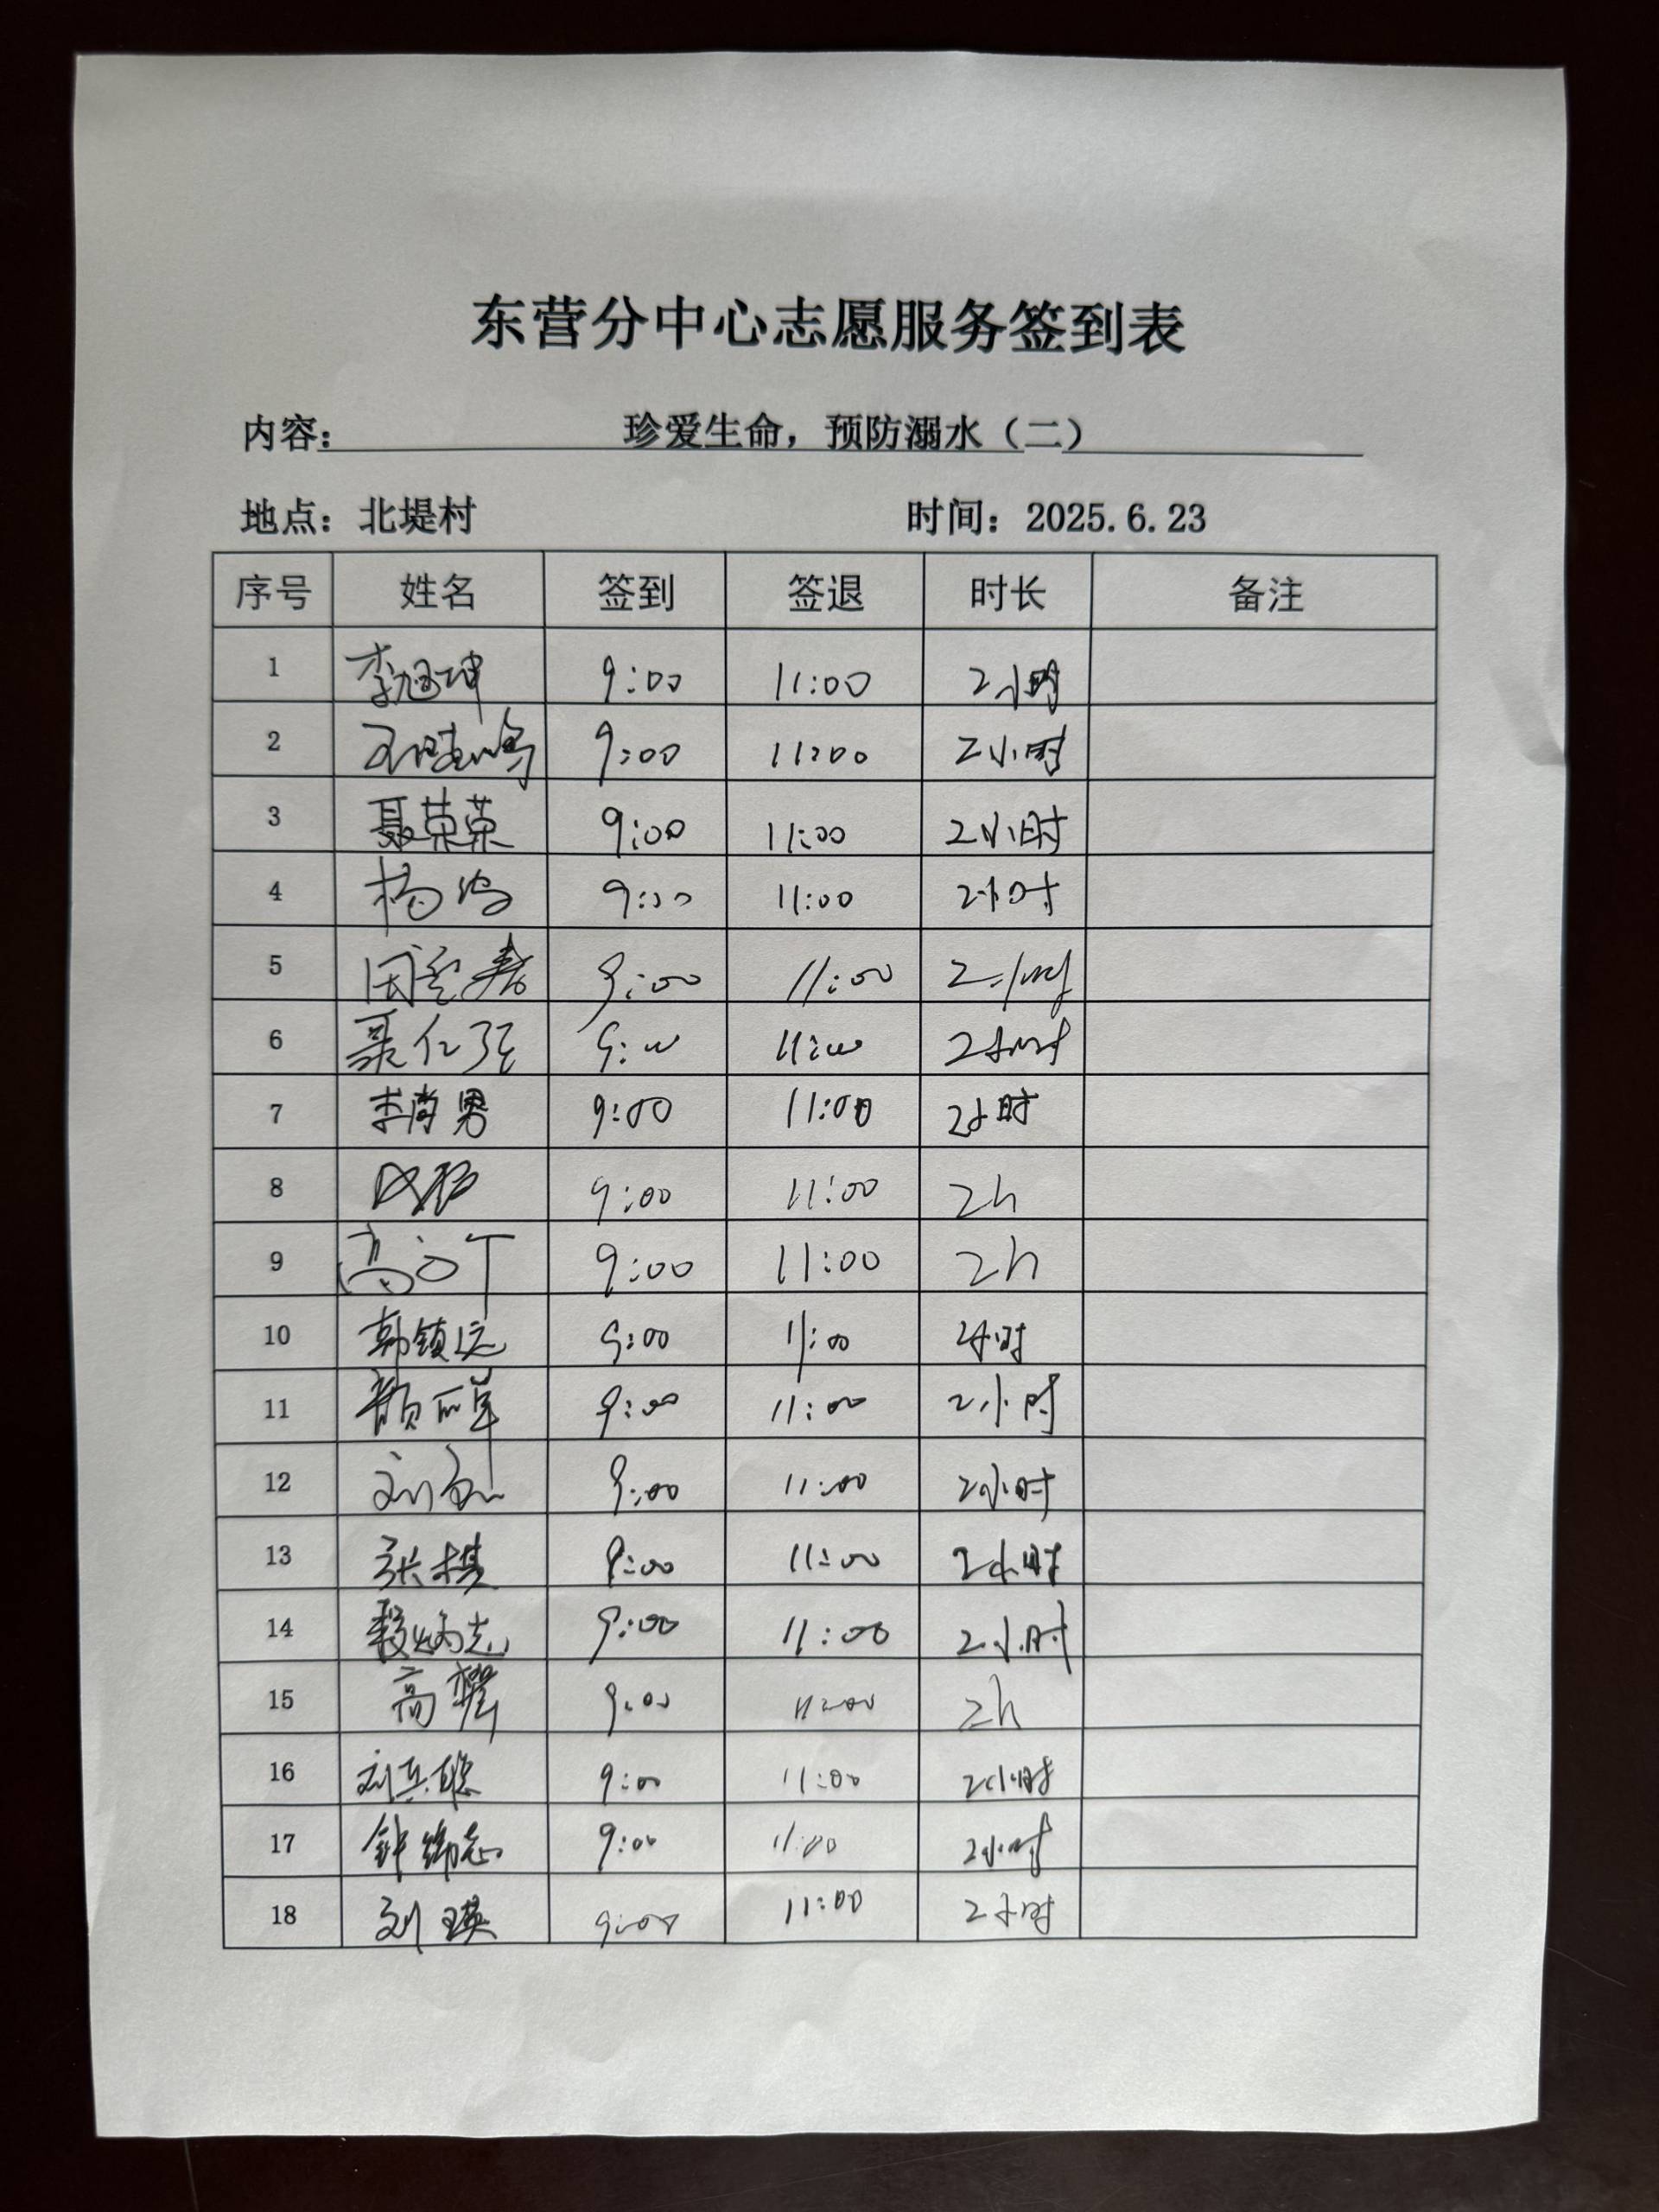 东营分中心志愿服务签到表
内容： 珍爱生命，预防溺水（二）
地点：北堤村 时间：2025.6.23
序号 姓名 签到 签退 时长 备注
1 李旭坤 9:00 11:00 2小时
2 9:00 11:00 2小时
3 聂荣荣 9:00 11:00 2小时
4 杨 9:00 11:00 2小时
5 9:00 11:00 2小时
6 聂仁强 9:00 11:00 2小时
7 李肖男 9:00 11:00 2小时
8 9:00 11:00 2h
9 高 9:00 11:00 2h
10 韩镇远 9:00 11:00 2小时
11 颜 9:00 11:00 2小时
12 刘 9:00 11:00 2小时
13 张棋 9:00 11:00 2小时
14 9:00 11:00 2小时
15 高耀 9:00 11:00 2h
16 刘兵聪 9:00 11:00 2小时
17 9:00 11:00 2小时
18 刘瑛 9:00 11:00 2小时